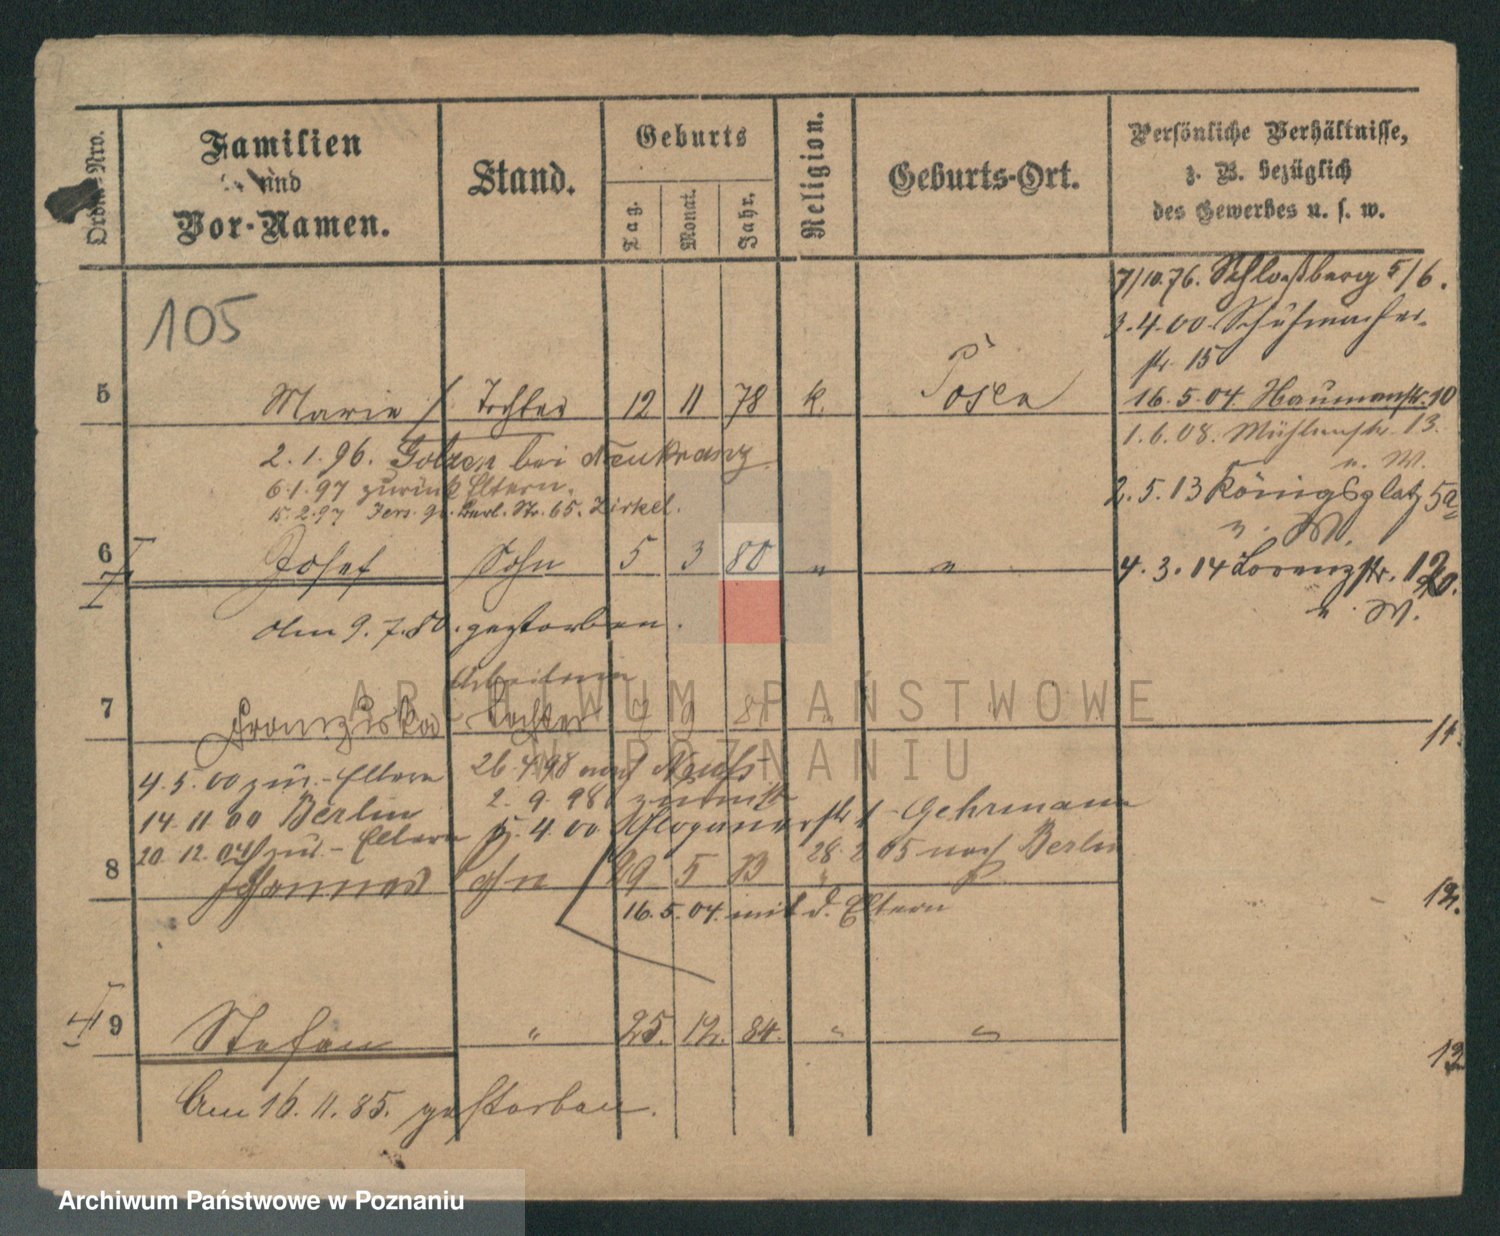 Ordn.-Nro.
Familien
und
Vor-Namen.
Stand.
Geburts
Tag.
Monat.
Jahr.
Religion.
Geburts-Ort.
Persönliche Verhältnisse,
z. B. bezüglich
des Gewerbes u. s. w.
105
7/10.76. Schloßberg 5/6.
3.4.00 Schuhmacher-
str. 15
5 Marie Tochter 12 11 78 k. Posen
16.5.04 Naumannstr. 10
1.6.08. Mühlenstr. 13.
u. W.
2.1.96. bei Neukranz
6.1.97 zurück Eltern.
15.2.97 Jers. Str. 65. Zirkel.
2.5.13 Königsplatz 5a
u. W.
6 Josef Sohn 5 3 80 " "
4.3.14 Lorenzstr.
u. W.
Am 9.7.80. gestorben.
Arbeiterin
7 Franziska Tochter 7 9 81 "
11.
4.5.00 zur. Eltern
26.4.98 nach
14.11.00 Berlin
2.9.98 zurück
5.4.00 Glogauerstr. Gehrmann
20.12.04 zur. Eltern
28.2.05 nach Berlin
8 Johannes Sohn 29 5 83 "
16.5.04. mit d. Eltern
12.
9 Stefan " 25. 12. 84. " "
13
Am 16.11.85. gestorben.
ARCHIWUM PAŃSTWOWE
W POZNANIU
Archiwum Państwowe w Poznaniu